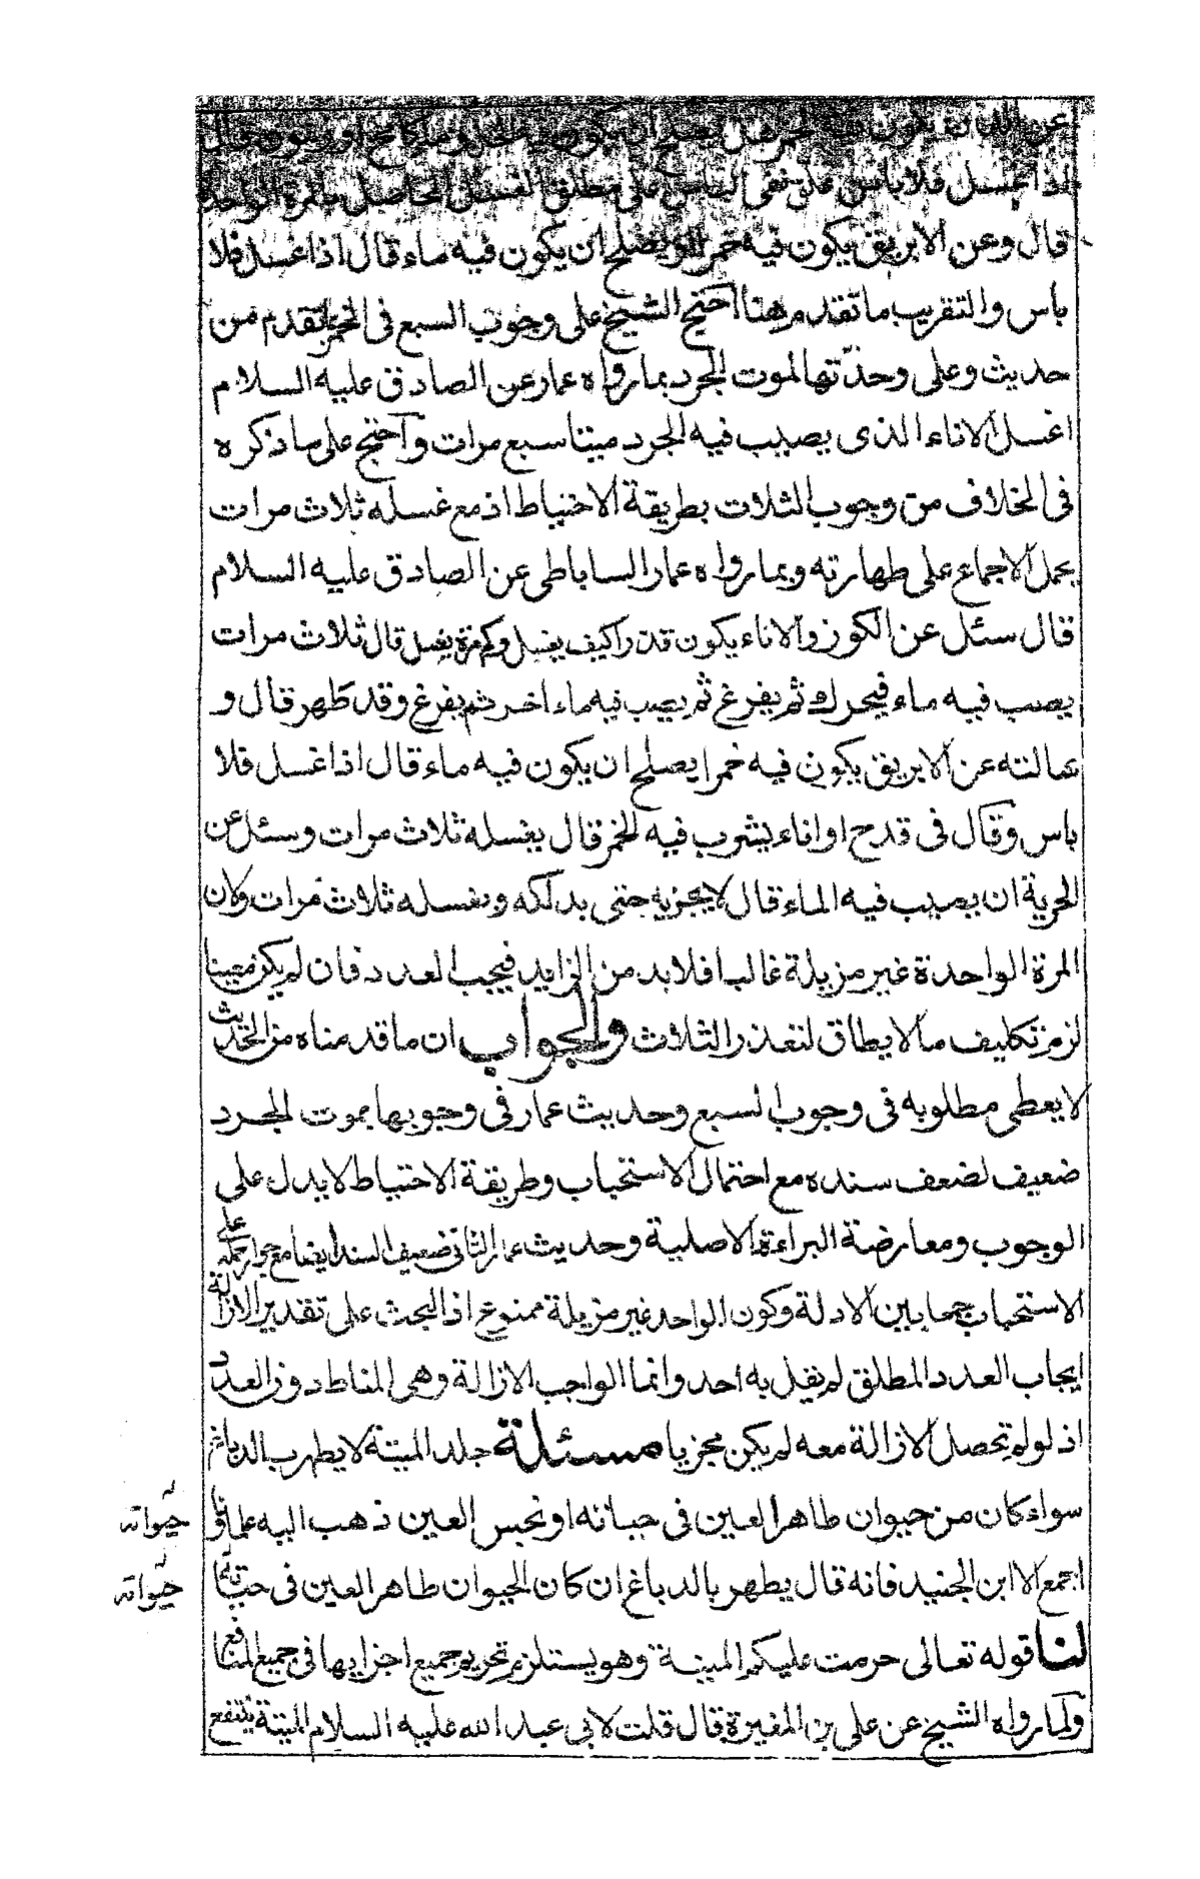 عن الدن يكون فيه الخمر هل يصلح ان يكون فيه خل وماء كامخ او زيتون قال
اذا غسل فلا باس علق نفى الباس على مطلق الغسل الحاصل بالمرة الواحدة
قال وعن الابريق يكون فيه خمر ايصلح ان يكون فيه ماء قال اذا غسل فلا
باس والتقريب ما تقدم هنا احتج الشيخ على وجوب السبع فى الخمر بما تقدم من
حديث وعلى وحدتها لموت الجرد بما رواه عمار عن الصادق عليه السلام
اغسل الاناء الذى يصيب فيه الجرد ميتا سبع مرات واحتج على ما ذكره
فى الخلاف من وجوب الثلاث بطريقة الاحتياط اذ مع غسله ثلاث مرات
يحصل الاجماع على طهارته وبما رواه عمار الساباطى عن الصادق عليه السلام
قال سئل عن الكوز والاناء يكون قذرا كيف يغسل وكم مرة يغسل قال ثلاث مرات
يصب فيه ماء فيحرك ثم يفرغ ثم يصب فيه ماء اخر ثم يفرغ وقد طهر قال و
سالته عن الابريق يكون فيه خمر ايصلح ان يكون فيه ماء قال اذا غسل فلا
باس وقال فى قدح او اناء يشرب فيه الخمر قال يغسله ثلاث مرات وسئل عن
الحرية ان يصيب فيه الماء قال لا يجزيه حتى يدلكه ويغسله ثلاث مرات ولان
المرة الواحدة غير مزيلة غالبا فلا بد من الزايد فيجب العدد فان لم يكن معينا
لزم تكليف ما لا يطاق لتعذر الثلاث والجواب ان ما قدمناه من الحديث
لا يعطى مطلوبه فى وجوب السبع وحديث عمار فى وجوبها بموت الجرد
ضعيف لضعف سنده مع احتمال الاستحباب وطريقة الاحتياط لا يدل على
الوجوب ومعارضة البراءة الاصلية وحديث عمار الثانى ضعيف السند ايضا مع جواز حمله على
الاستحباب جمعا بين الادلة وكون الواحد غير مزيلة ممنوع اذ البحث على تقدير الازالة
ايجاب العدد المطلق لم يقل به احد وانما الواجب الازالة وهى المناط دون العدد
اذ لو لم تحصل الازالة معه لم يكن مجزيا مسئلة جلد الميتة لا يطهر بالدباغ
سواء كان من حيوان طاهر العين فى حياته او نجس العين ذهب اليه علماؤنا
اجمع الا ابن الجنيد فانه قال يطهر بالدباغ ان كان الحيوان طاهر العين فى حياته
لنا قوله تعالى حرمت عليكم الميتة وهو يستلزم تحريم جميع اجزايها فى جميع المنافع
ولما رواه الشيخ عن على بن المغيرة قال قلت لابى عبد الله عليه السلام الميتة ينتفع
حيواته
حيواته